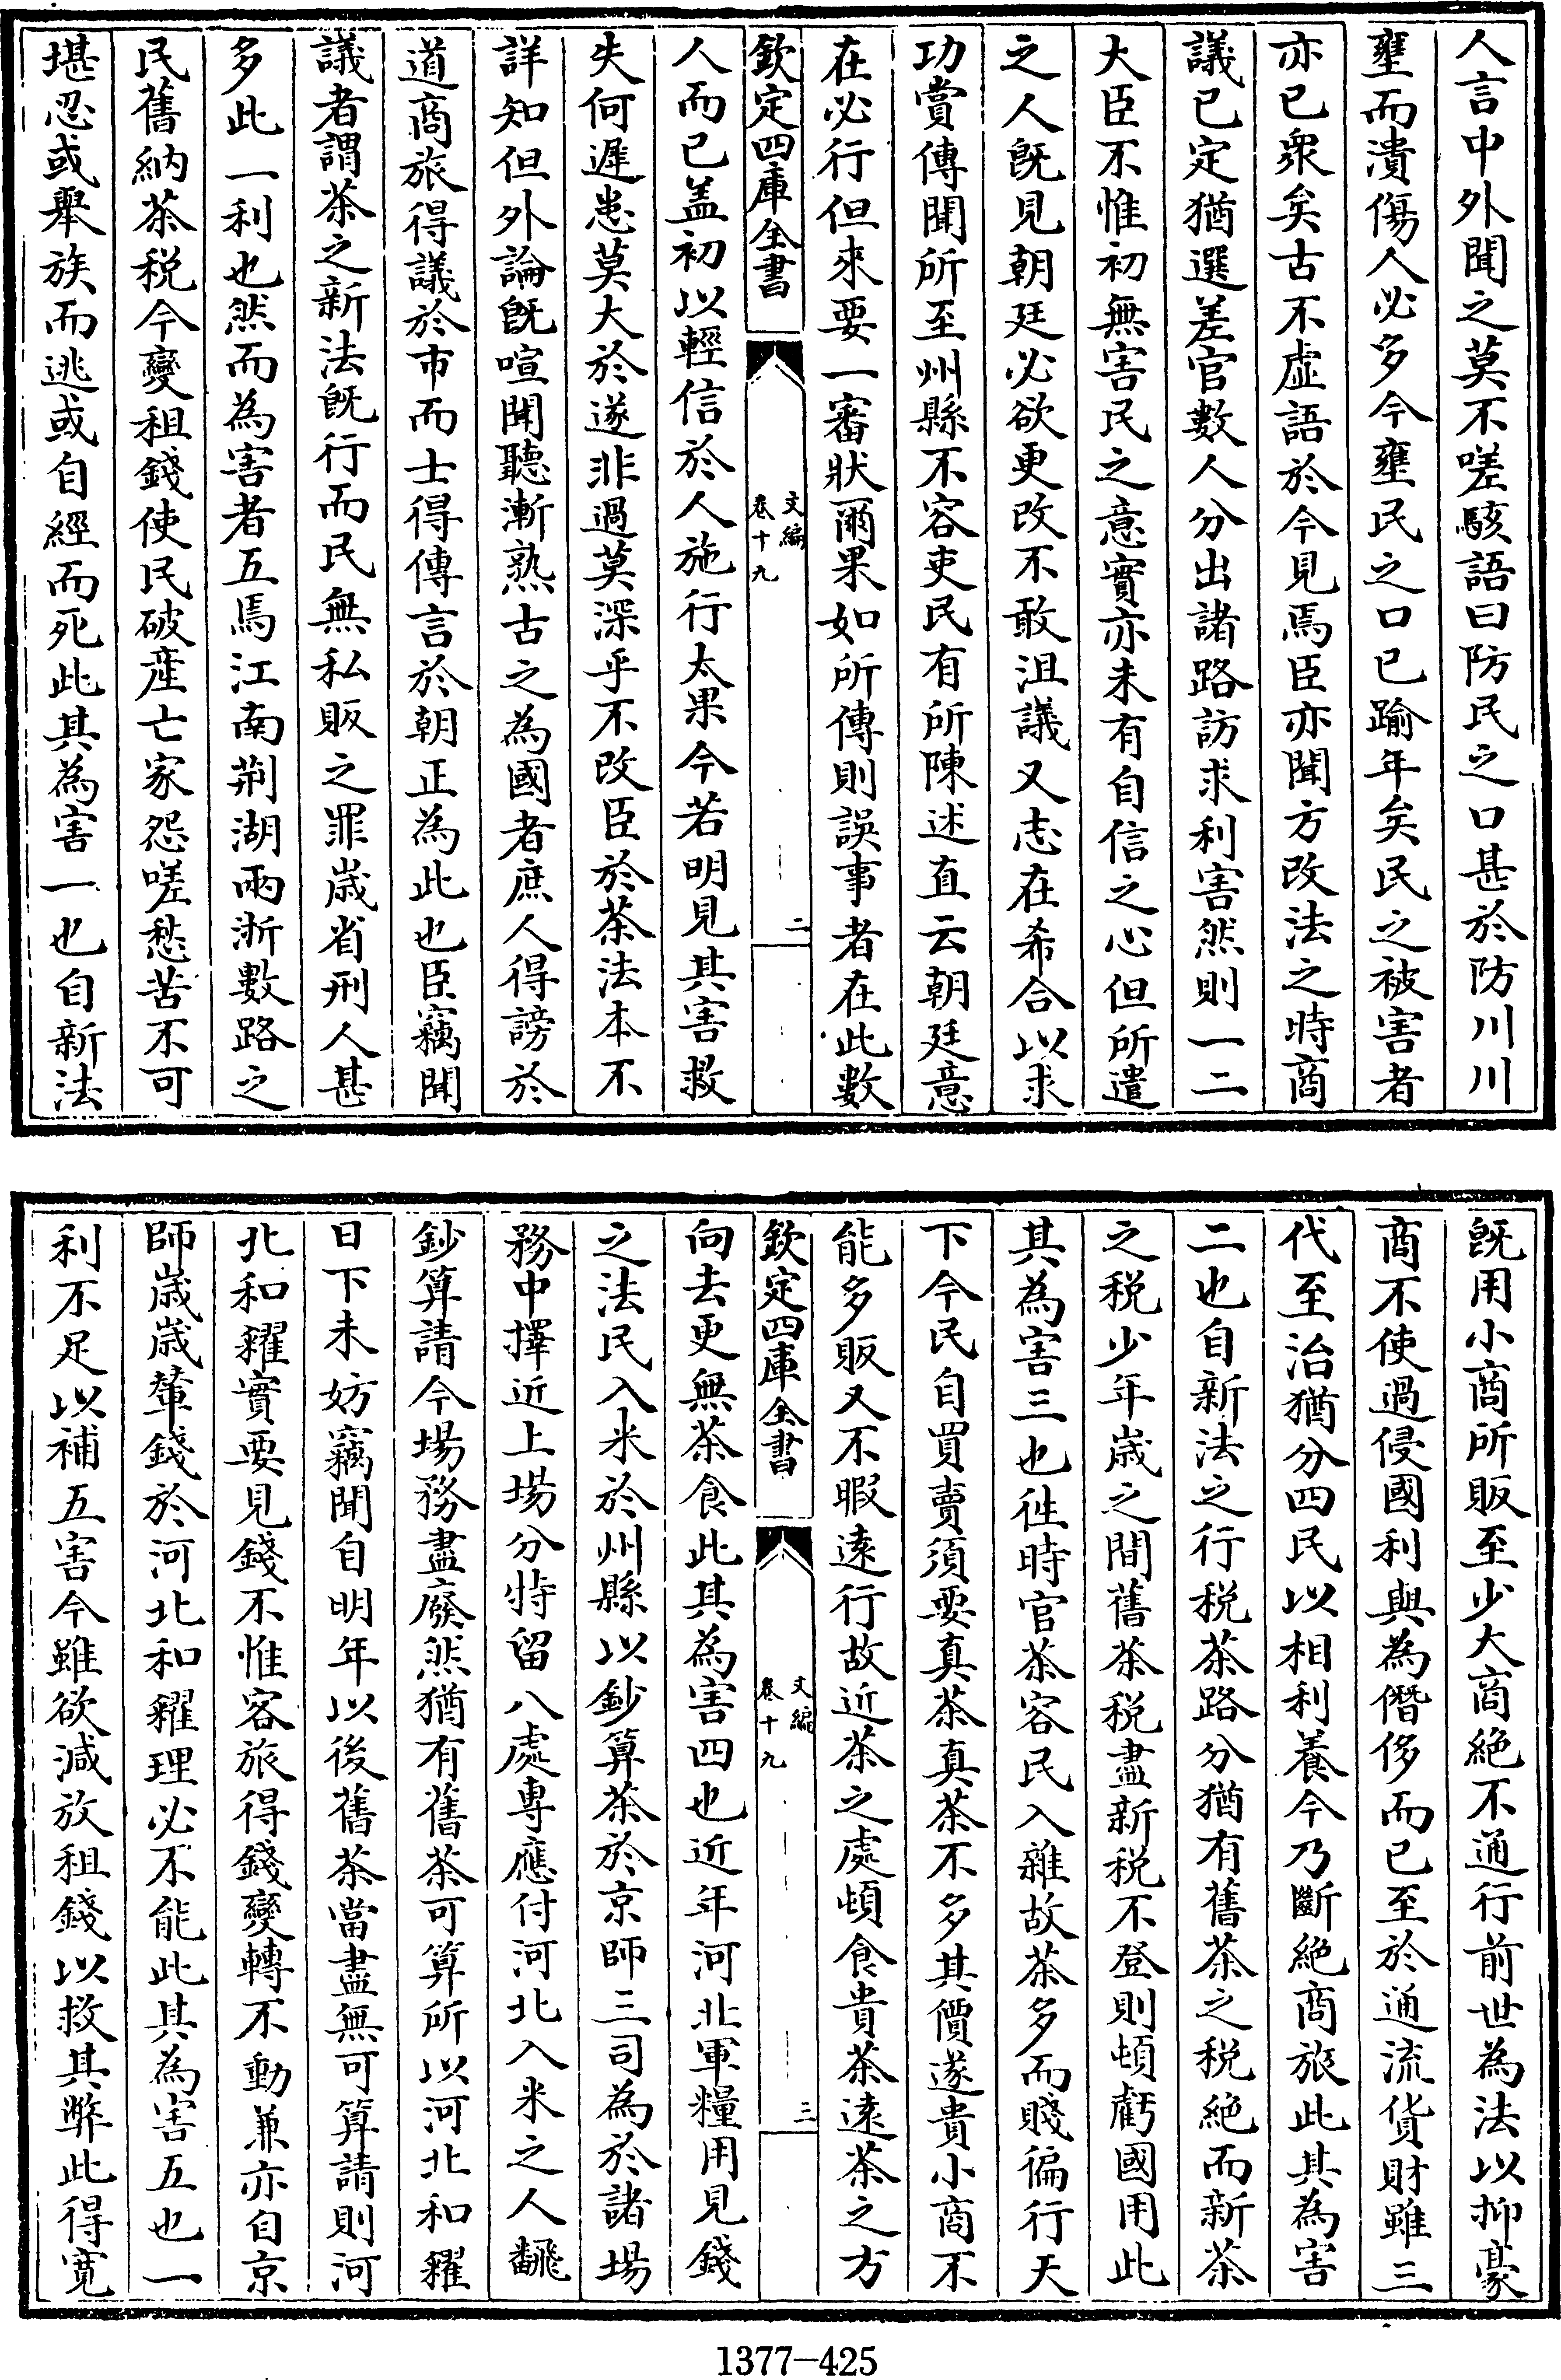 人言中外聞之莫不嗟駭語曰防民之口甚於防川川
壅而潰傷人必多今壅民之口已踰年矣民之被害者
亦已衆矣古不虛語於今見焉臣亦聞方改法之時商
議已定猶選差官數人分出諸路訪求利害然則一二
大臣不惟初無害民之意實亦未有自信之心但所遣
之人旣見朝廷必欲更改不敢沮議又志在希合以求
功賞傳聞所至州縣不容吏民有所陳述直云朝廷意
在必行但來要一審狀爾果如所傳則誤事者在此數
欽定四庫全書
文編
卷十九
二
人而已盖初以輕信於人施行太果今若明見其害救
失何遲患莫大於遂非過莫深乎不改臣於茶法本不
詳知但外論旣喧聞聽漸熟古之為國者庶人得謗於
道商旅得議於市而士得傳言於朝正為此也臣竊聞
議者謂茶之新法旣行而民無私販之罪歲省刑人甚
多此一利也然而為害者五焉江南荆湖兩浙數路之
民舊納茶税今變租錢使民破産亡家怨嗟愁苦不可
堪忍或舉族而逃或自經而死此其為害一也自新法
旣用小商所販至少大商絶不通行前世為法以抑豪
商不使過侵國利與為僭侈而已至於通流貨財雖三
代至治猶分四民以相利養今乃斷絶商旅此其為害
二也自新法之行税茶路分猶有舊茶之税絶而新茶
之税少年歲之間舊茶税盡新税不登則頓虧國用此
其為害三也徃時官茶容民入雜故茶多而賤徧行天
下今民自買賣須要真茶真茶不多其價遂貴小商不
能多販又不暇遠行故近茶之處頓食貴茶遠茶之方
欽定四庫全書
文編
卷十九
三
向去更無茶食此其為害四也近年河北軍糧用見錢
之法民入米於州縣以鈔算茶於京師三司為於諸場
務中擇近上場分特留八處專應付河北入米之人翻
鈔算請今場務盡廢然猶有舊茶可算所以河北和糴
日下未妨竊聞自明年以後舊茶當盡無可算請則河
北和糴實要見錢不惟客旅得錢變轉不動兼亦自京
師歲歲輦錢於河北和糴理必不能此其為害五也一
利不足以補五害今雖欲減放租錢以救其弊此得寛
1377-425